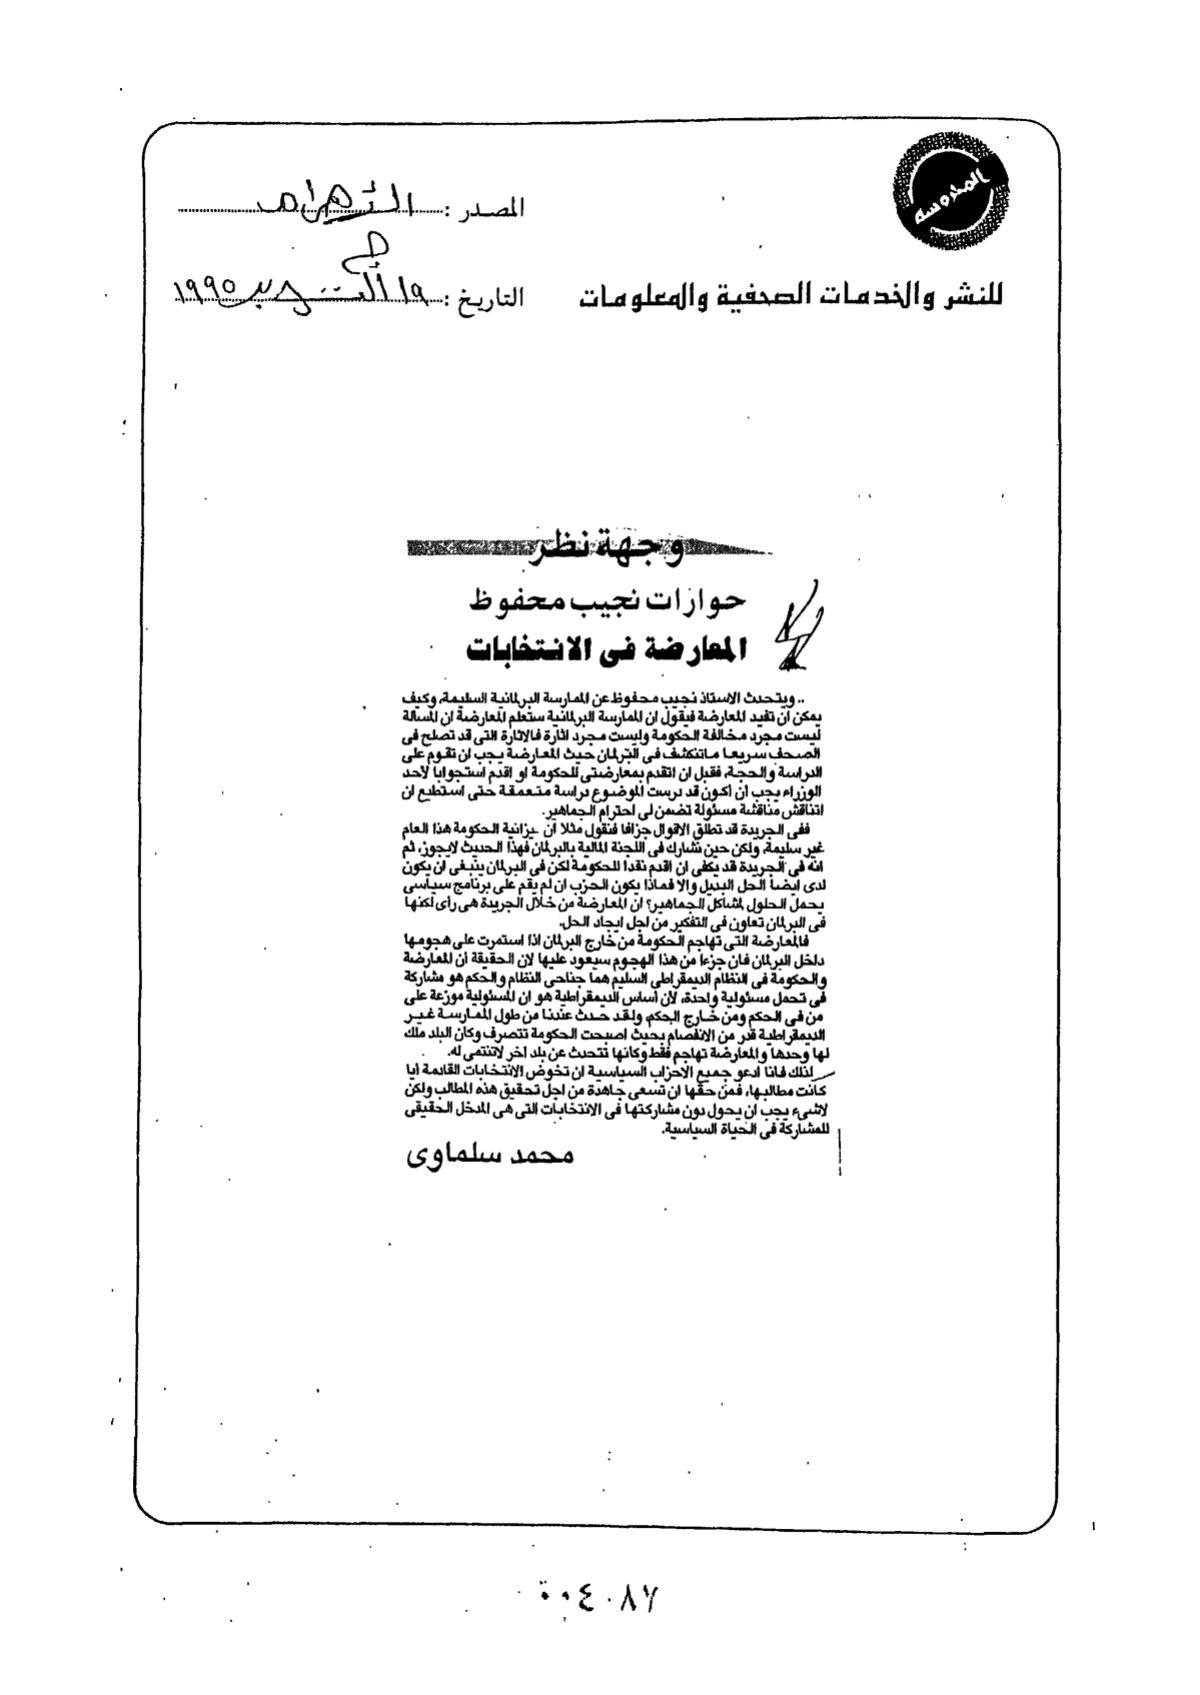 المحروسة
المصدر : الأهرام
للنشر والخدمات الصحفية والمعلومات
التاريخ : ١٩ أكتوبر ١٩٩٥
وجهة نظر
حوارات نجيب محفوظ
المعارضة فى الانتخابات
.. ويتحدث الاستاذ نجيب محفوظ عن الممارسة البرلمانية السليمة، وكيف
يمكن ان تفيد المعارضة فيقول ان الممارسة البرلمانية ستعلم المعارضة ان المسألة
ليست مجرد مخالفة الحكومة وليست مجرد اثارة فالاثارة التى قد تصلح فى
الصحف سريعا ماتنكشف فى البرلمان حيث المعارضة يجب ان تقوم على
الدراسة والحجة، فقبل ان اتقدم بمعارضتى للحكومة او اقدم استجوابا لاحد
الوزراء يجب ان اكون قد درست الموضوع دراسة متعمقة حتى استطيع ان
اتناقش مناقشة مسئولة تضمن لى احترام الجماهير.
ففى الجريدة قد تطلق الاقوال جزافا فنقول مثلا ان ميزانية الحكومة هذا العام
غير سليمة، ولكن حين نشارك فى اللجنة المالية بالبرلمان فهذا الحديث لايجوز، ثم
انه فى الجريدة قد يكفى ان اقدم نقدا للحكومة لكن فى البرلمان ينبغى ان يكون
لدى ايضا الحل البديل والا فماذا يكون الحزب ان لم يقم على برنامج سياسى
يحمل الحلول لمشاكل الجماهير؟ ان المعارضة من خلال الجريدة هى رأى لكنها
فى البرلمان تعاون فى التفكير من اجل ايجاد الحل.
فالمعارضة التى تهاجم الحكومة من خارج البرلمان اذا استمرت على هجومها
داخل البرلمان فان جزءا من هذا الهجوم سيعود عليها لان الحقيقة ان المعارضة
والحكومة فى النظام الديمقراطى السليم هما جناحى النظام والحكم هو مشاركة
فى تحمل مسئولية واحدة، لأن أساس الديمقراطية هو ان المسئولية موزعة على
من فى الحكم ومن خارج الحكم، ولقد حدث عندنا من طول الممارسة غير
الديمقراطية قدر من الانفصام بحيث اصبحت الحكومة تتصرف وكأن البلد ملك
لها وحدها والمعارضة تهاجم فقط وكانها تتحدث عن بلد اخر لاتنتمى له.
لذلك فانا ادعو جميع الاحزاب السياسية ان تخوض الانتخابات القادمة أيا
كانت مطالبها، فمن حقها ان تسعى جاهدة من اجل تحقيق هذه المطالب ولكن
لاشىء يجب ان يحول دون مشاركتها فى الانتخابات التى هى المدخل الحقيقى
للمشاركة فى الحياة السياسية.
محمد سلماوى
٠٠٤٠٨٧